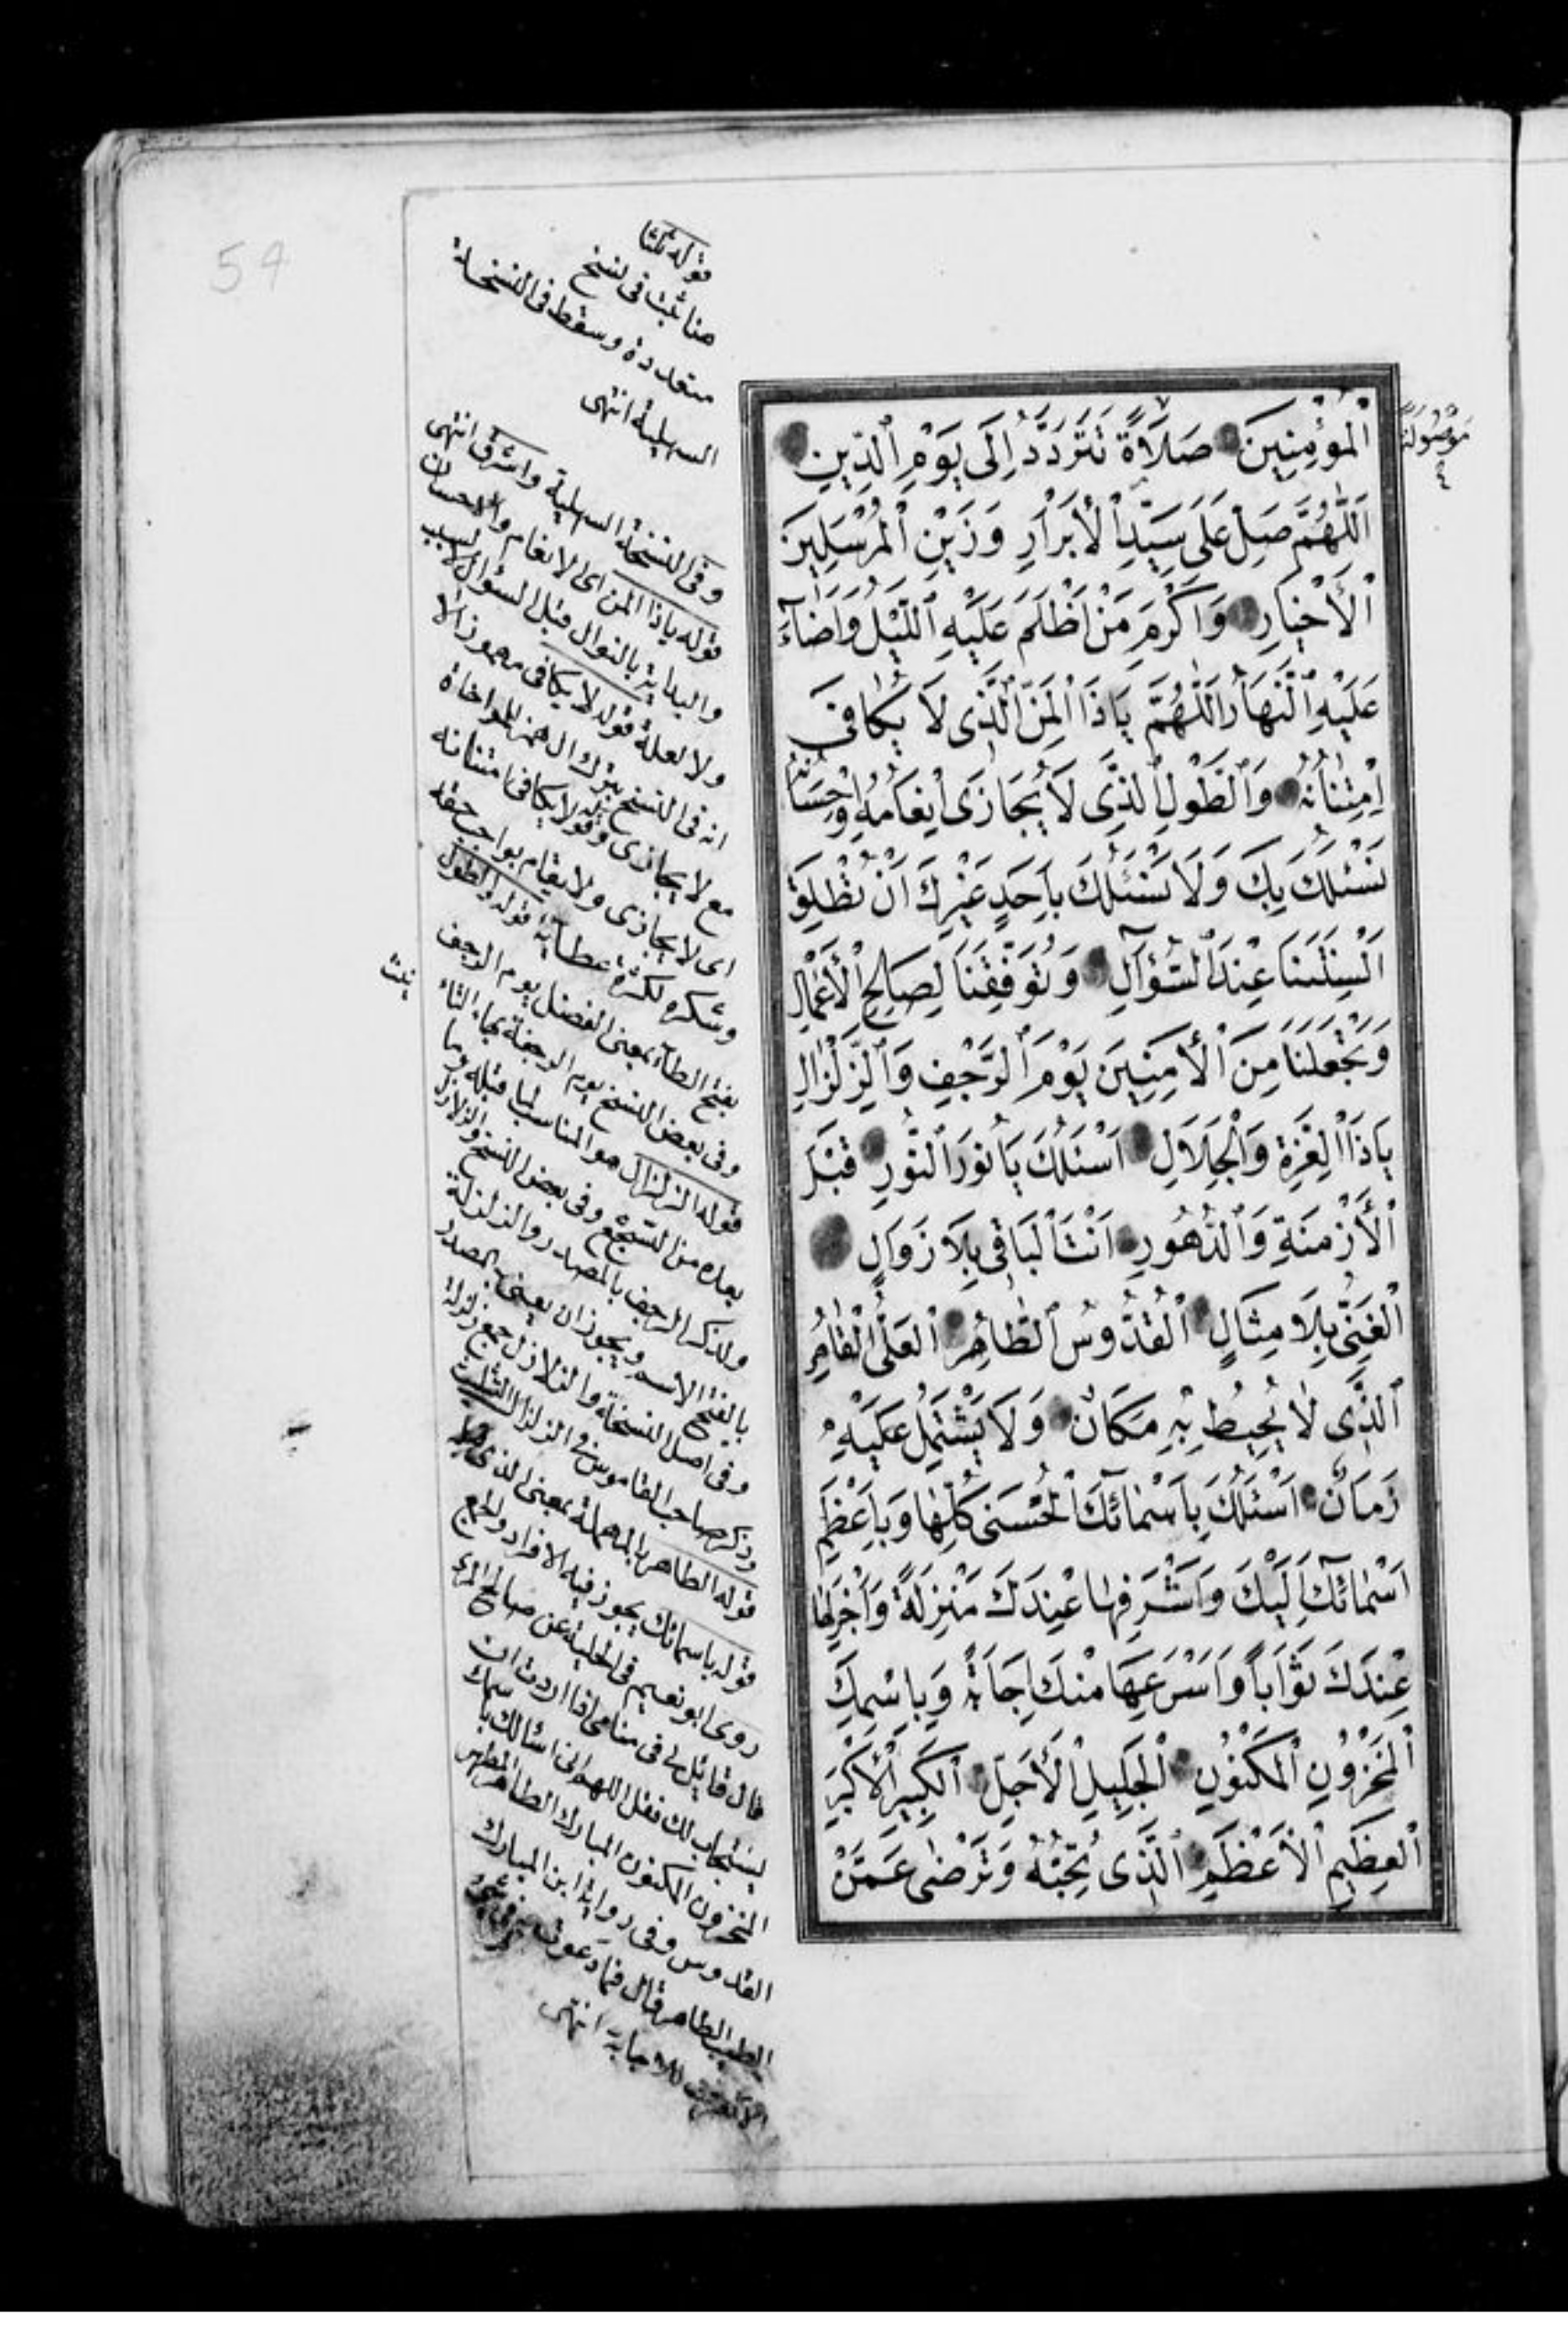 54
اَلْمُؤْمِنِينَ صَلَاةً تَتَرَدَّدُ اِلَى يَوْمِ الدِّينِ
اَللّٰهُمَّ صَلِّ عَلَى سَيِّدِ الْأَبْرَارِ وَزَيْنِ الْمُرْسَلِينَ
الْأَخْيَارِ وَاَكْرَمِ مَنْ اَظْلَمَ عَلَيْهِ اللَّيْلُ وَاَضَآءَ
عَلَيْهِ النَّهَارُ اَللّٰهُمَّ يَاذَا الْمَنِّ الَّذِى لَا يُكَافٰى
اِمْتِنَانُهُ وَالطَّوْلِ الَّذِى لَا يُجَازَى اِنْعَامُهُ وَاِحْسَانُهُ
نَسْئَلُكَ بِكَ وَلَا نَسْئَلُكَ بِاَحَدٍ غَيْرِكَ اَنْ تُطْلِقَ
اَلْسِنَتَنَا عِنْدَ السُّؤَآلِ وَتُوَفِّقَنَا لِصَالِحِ الْأَعْمَالِ
وَتَجْعَلَنَا مِنَ الْأٰمِنِينَ يَوْمَ الرَّجْفِ وَالزِّلْزَالِ
يَاذَا الْعِزَّةِ وَالْجَلَالِ اَسْئَلُكَ يَا نُورَ النُّورِ قَبْلَ
الْأَزْمِنَةِ وَالدُّهُورِ اَنْتَ الْبَاقِى بِلَا زَوَالٍ
الْغَنِىُّ بِلَا مِثَالٍ الْقُدُّوسُ الطَّاهِرُ الْعَلِىُّ الْقَاهِرُ
الَّذِى لَا يُحِيطُ بِهِ مَكَانٌ وَلَا يَشْتَمِلُ عَلَيْهِ
زَمَانٌ اَسْئَلُكَ بِاَسْمَائِكَ الْحُسْنَى كُلِّهَا وَبِاَعْظَمِ
اَسْمَائِكَ اِلَيْكَ وَاَشْرَفِهَا عِنْدَكَ مَنْزِلَةً وَاَجْزَلِهَا
عِنْدَكَ ثَوَابًا وَاَسْرَعِهَا مِنْكَ اِجَابَةً وَبِاسْمِكَ
الْمَخْزُونِ الْمَكْنُونِ الْجَلِيلِ الْأَجَلِّ الْكَبِيرِ الْأَكْبَرِ
الْعَظِيمِ الْأَعْظَمِ الَّذِى تُحِبُّهُ وَتَرْضٰى عَمَّنْ
قوله ثلثا
هنا ثبت فى نسخ
متعددة وسقط فى النسخة
السهلية انتهى
وفى النسخة السهلية واشرق انتهى
قوله ياذا المن اى الانعام والاحسان
والبداية بالنوال قبل السؤال لا لسبب
ولا لعلة قوله لا يكافى مهموز الا
انه فى النسخ بترك الهمز للمواخاة
مع لا يجازى وقوله لا يكافى امتنانه
اى لا يجازى ولا يقام بواجب حقه
وشكره لكثرة عطائه قوله والطول
بفتح الطاء بمعنى الفضل يوم الرجف
وفى بعض النسخ يوم الرجفة بهاء التاء
قوله الزلزال هو المناسب لما قبله وما
بعده من السجع وفى بعض النسخ والزلازل
ولذكر الرجف بالمصدر والزلزلة
بالفتح الاسم ويجوز ان يعنى به المصدر
وفى اصل النسخة والزلازل جمع زلزلة
قوله الطاهر بالمهملة بمعنى
قوله باسمائك يجوز فيه الافراد والجمع
روى ابو نعيم فى الحلية عن صالح المرى
قال قائل لى فى منامى اذا اردت ان
يستجاب لك فقل اللهم انى اسألك باسمك
المخزون المكنون المبارك الطاهر المطهر
القدوس وفى رواية ابن المبارك
الطيب الطاهر قال فما دعوت به فى شئ
الا تعرفت للاجابة انتهى